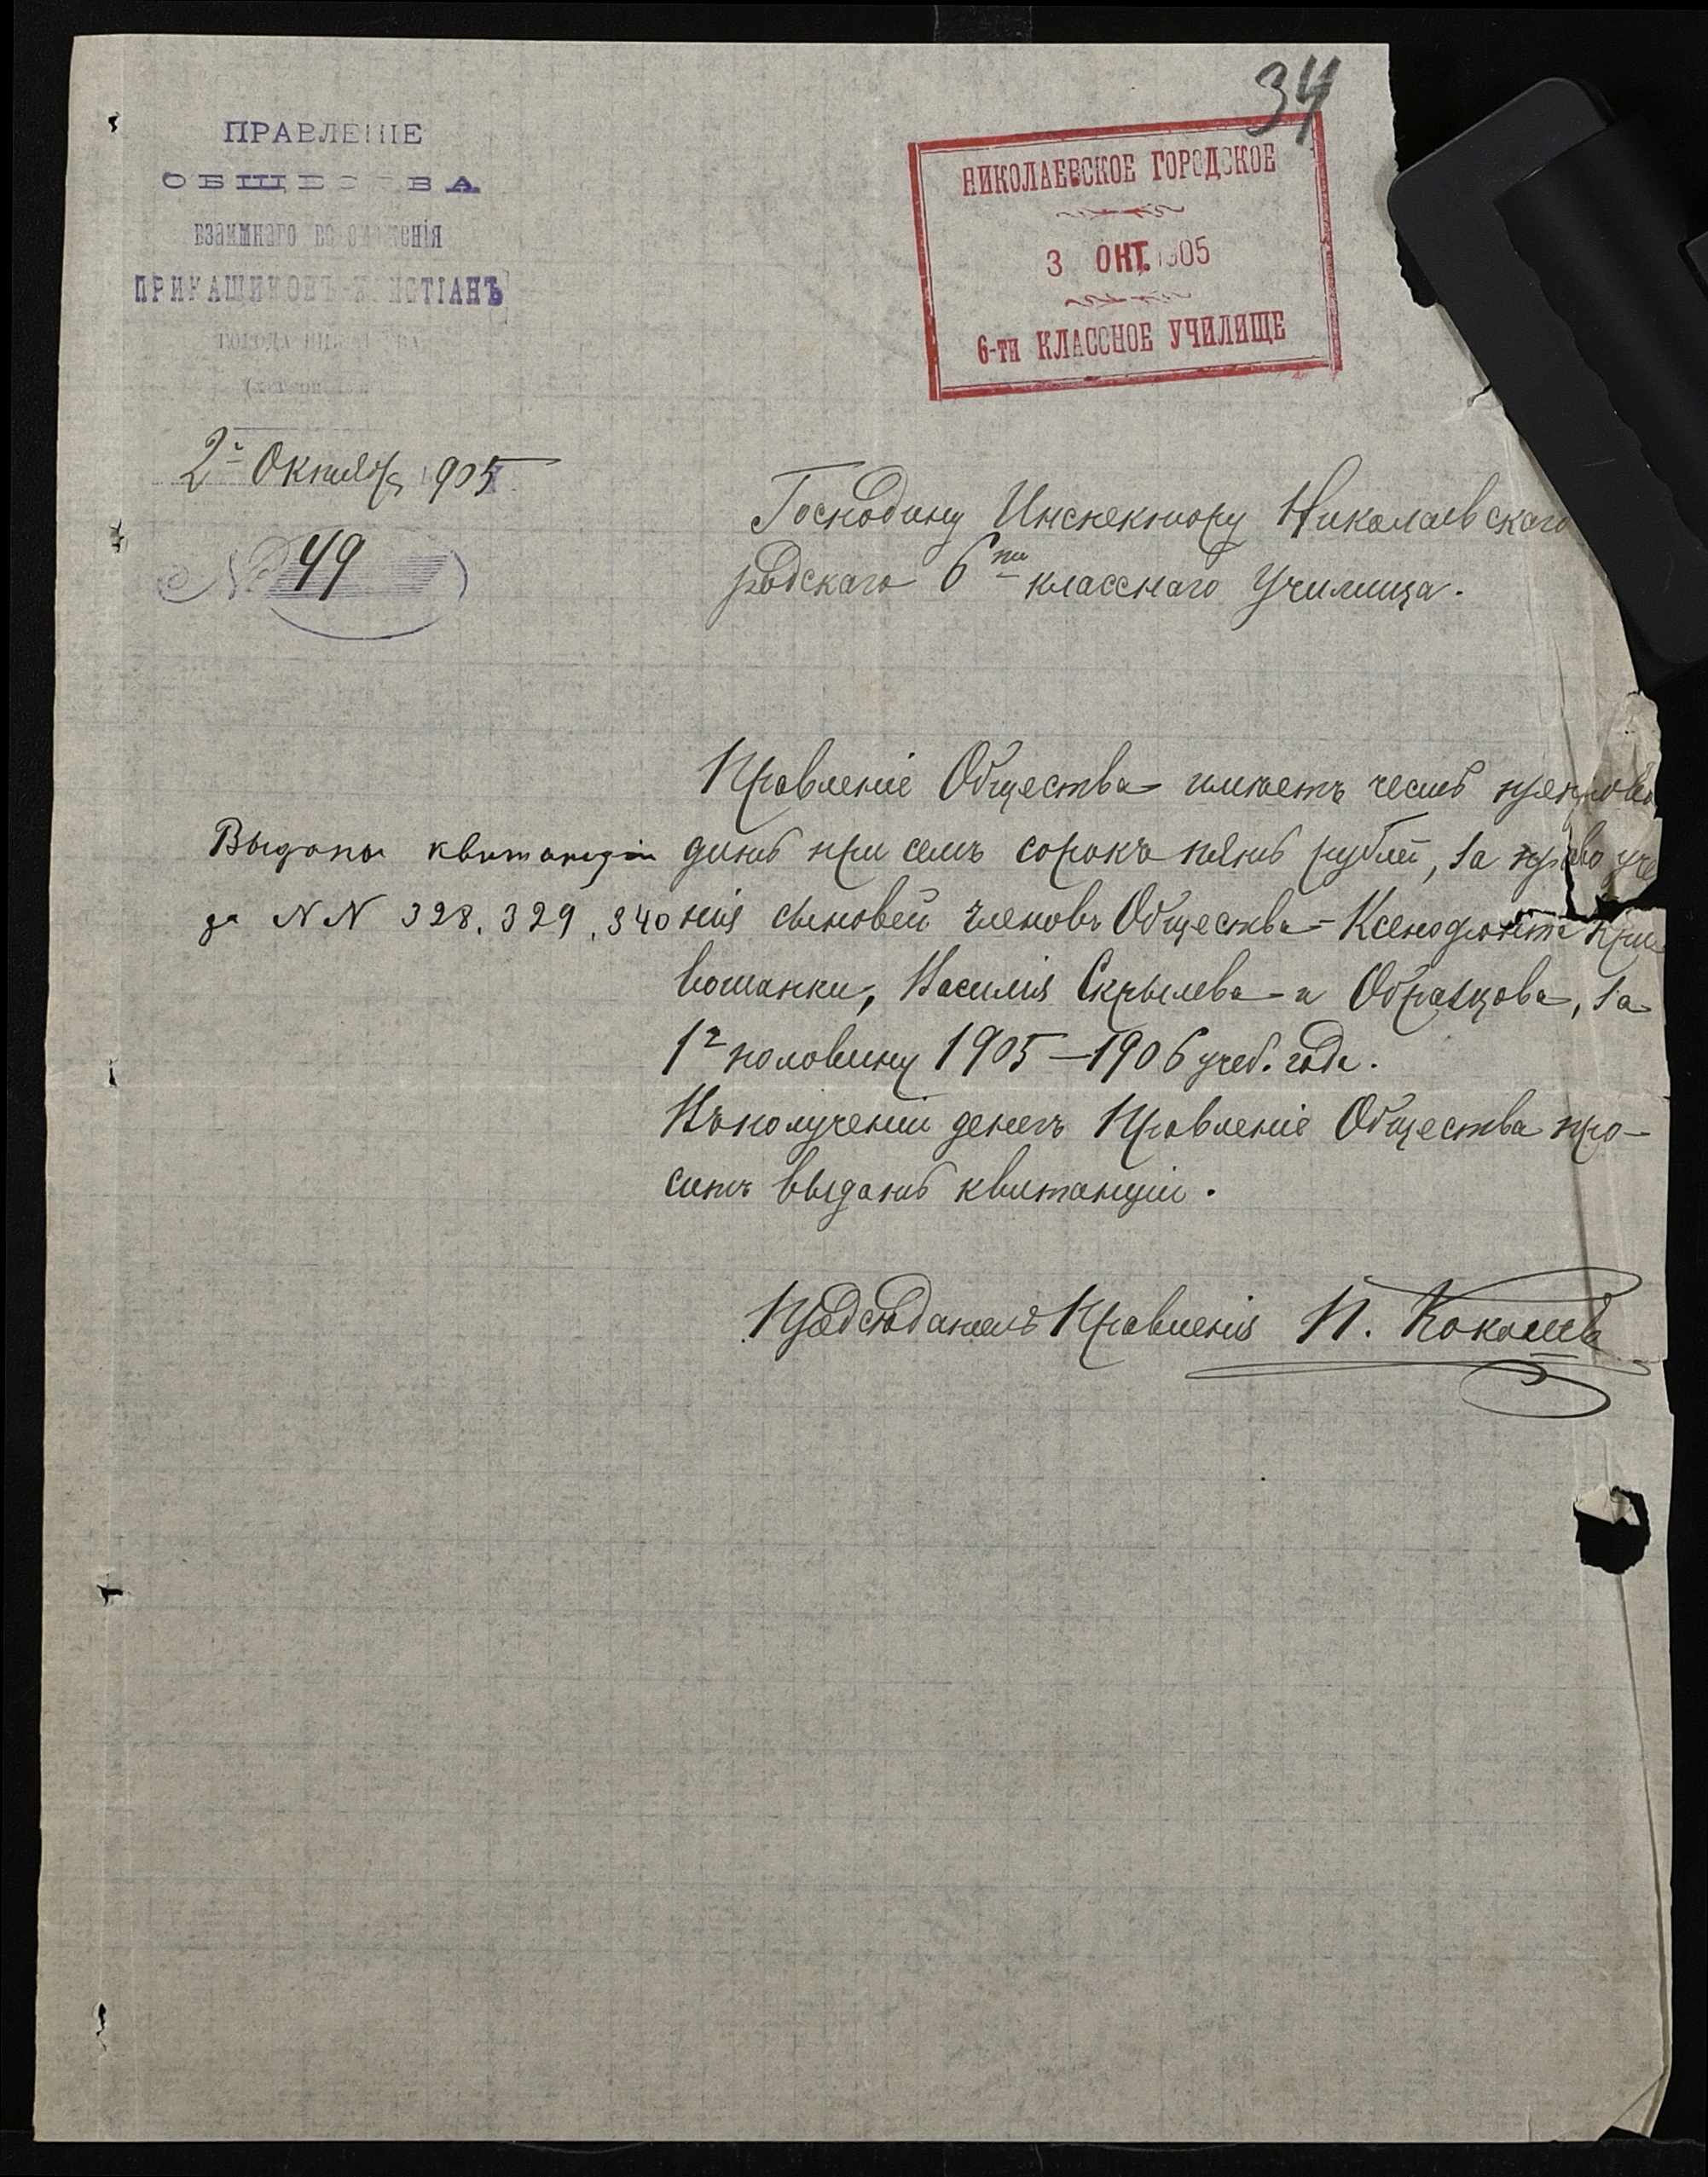 34
ПРАВЛЕНІЕ
ОБЩЕСТВА
взаимнаго вспоможенія
ПРИКАЩИКОВЪ-ХРИСТІАНЪ
ГОРОДА НИКОЛАЕВА
НИКОЛАЕВСКОЕ ГОРОДСКОЕ
3 ОКТ. 1905
6-ти КЛАССНОЕ УЧИЛИЩЕ
2го Октября 1905
№ 49
Господину Инспектору Николаевскаго
родскаго 6ти классного Училища.
Правленіе Общества имѣетъ честь препрово
дить при семъ сорокъ пять рублей, за право уче
нія сыновей членовъ Общества - Ксенофонта Кри
вошапки, Василія Скрылева и Образцова, за
1ю половину 1905—1906 учеб. года.
Въ полученіи денегъ Правленіе Общества про-
ситъ выдать квитанціи.
Выданы квитанціи
за NN 328. 329. 340
Предсѣдатель Правленія П.